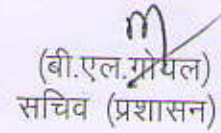 (बी.एल.गोयल)
सचिव (प्रशासन)